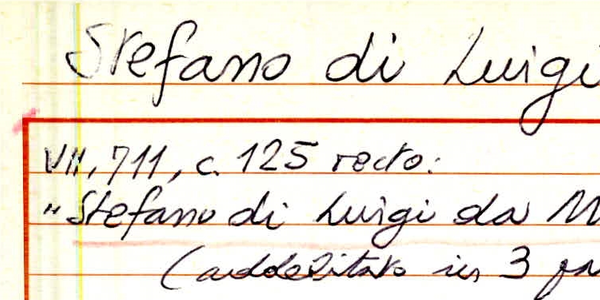 Stefano di Luigi
VII, 711, c. 125 recto:
"Stefano di Luigi da M
(addebitato in 3